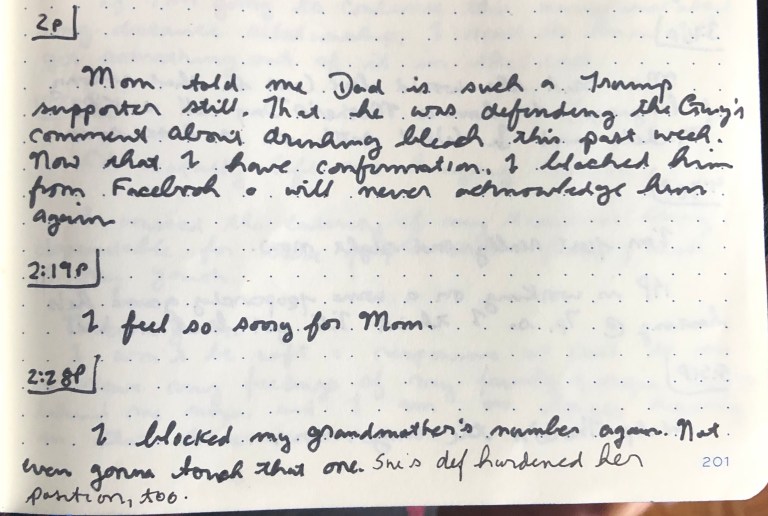 2p
Mom told me Dad is such a Trump
supporter still. That he was defending the Guy's
comment about drinking bleach this past week.
Now that I have confirmation. I blocked him
from Facebook & will never acknowledge him
again
2:19p
I feel so sorry for Mom.
2:28P
I blocked my grandmother's number again. Not
even gonna touch that one. She's def hardened her
position, too.
201